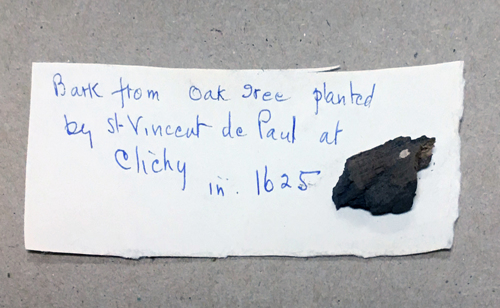 Bark from Oak Tree planted
by St Vincent de Paul at
Clichy
in. 1625